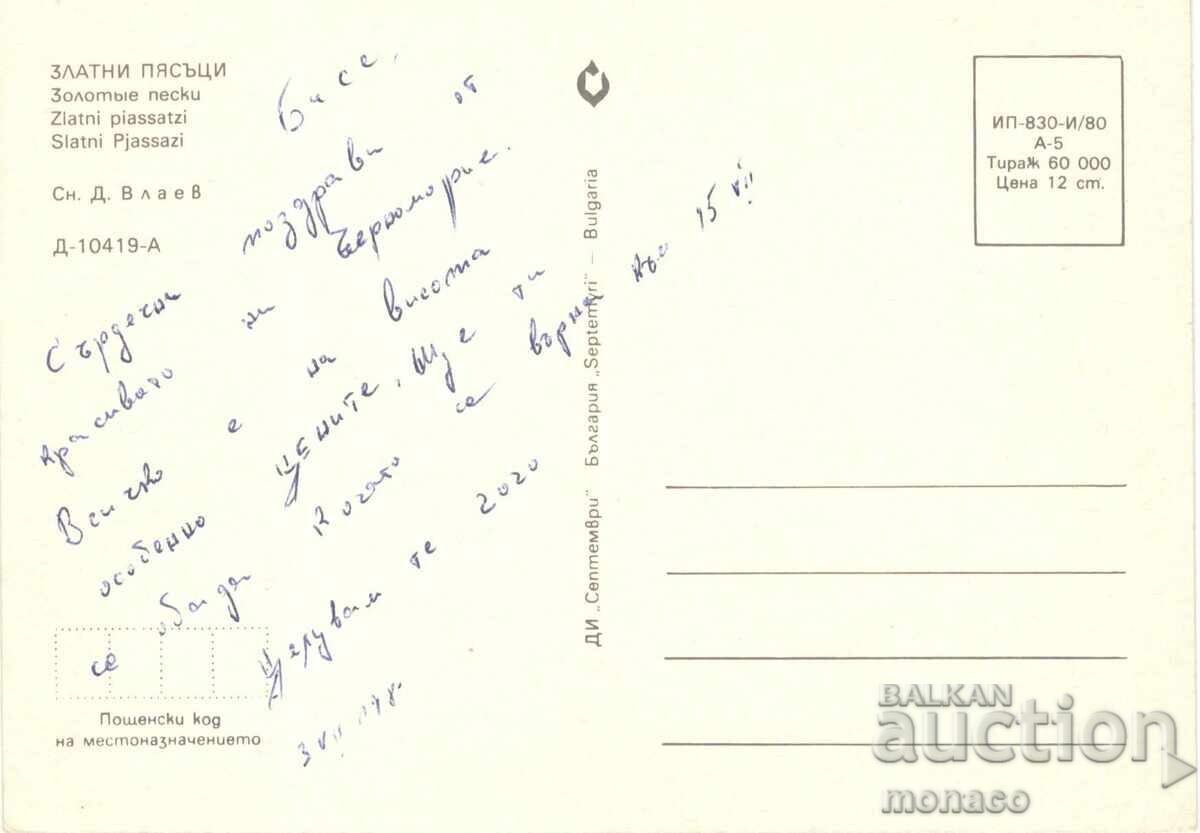 ЗЛАТНИ ПЯСЪЦИ
Золотые пески
Zlatni piassatzi
Slatni Pjassazi
Сн. Д. Влаев
Д-10419-А
Бисе,
Сърдечни поздрави от
красивото ни Черноморие.
Всичко е на висота
особенно цените. Ще ти
се обадя когато се върна към 15 VII
Целувам те Гого
3 VII
Пощенски код
на местоназначението
ДИ „Септември" България „Septemvri" – Bulgaria
ИП-830-И/80
А-5
Тираж 60 000
Цена 12 ст.
BALKAN
auction
monaco